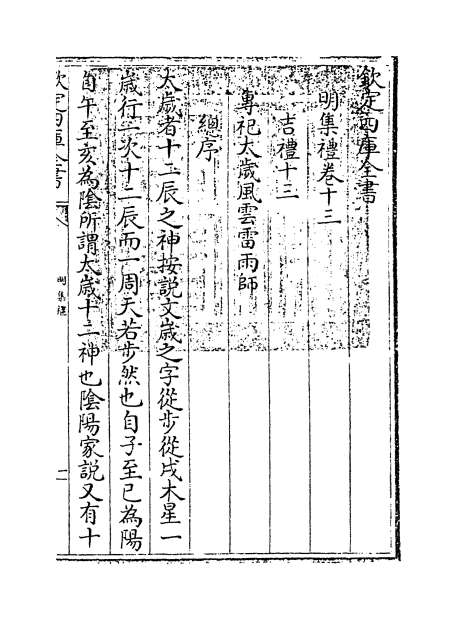 欽定四庫全書
明集禮卷十三
吉禮十三
專祀太歲風雲雷雨師
總序
太歲者十二辰之神按說文歲之字從步從戌木星一
歲行一次十二辰而一周天若步然也自子至巳為陽
自午至亥為陰所謂太歲十二神也陰陽家說又有十
欽定四庫全書
明集禮
一